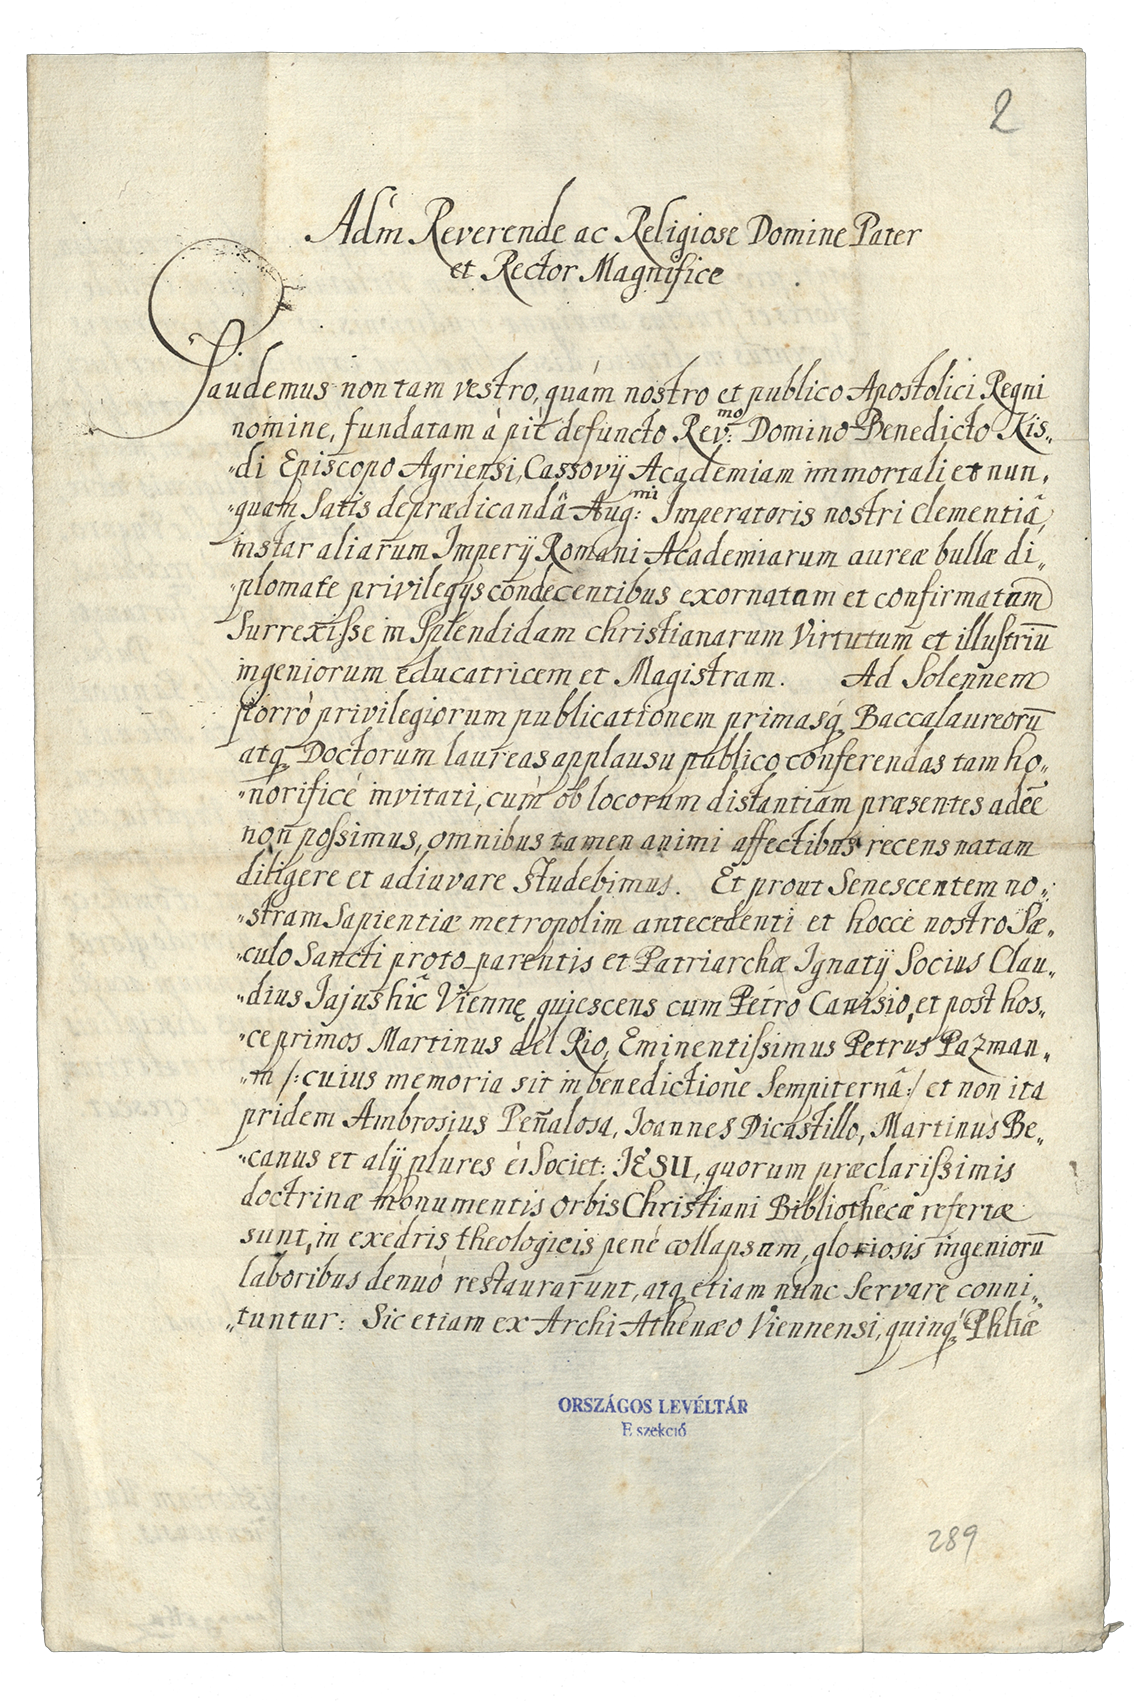 2
Adm̃ Reverende ac Religiose Domine Pater
et Rector Magnifice
Gaudemus non tam vestro, quàm nostro et publico Apostolici Regni
nomine, fundatam à piè defuncto Rev:mo Domino Benedicto Kis„
„di Episcopo Agriensi, Cassovÿ Academiam immortali et nun„
„quam satis deprædicandâ Aug:mi Imperatoris nostri clementiâ,
instar aliarum Imperÿ Romani Academiarum aureæ bullæ di„
„plomate privilegÿs condecentibus exornatam et confirmatam
surrexisse in splendidam christianarum Virtutum et illustriũ
ingeniorum educatricem et Magistram. Ad solennem
porrò privilegiorum publicationem primasq́ Baccalaureorũ
atq́ Doctorum laureas applausu publico conferendas tam ho„
„norificè invitati, cùm ob locorum distantiam præsentes adeẽ
non possimus, omnibus tamen animi affectibus recens natam
diligere et adiuvare studebimus. Et prout senescentem no„
„stram sapientiæ metropolim antecedenti et hocce nostro sæ„
„culo Sancti proto-parentis et Patriarchæ Ignatÿ socius Clau„
„dius Jajus hîc Viennę quiescens cum Petro Canisio, et post hos„
„ce primos Martinus del Rio, Eminentissimus Petrus Pazman„
„in /: cuius memoria sit in benedictione sempiternâ :/ et non ita
pridem Ambrosius Peñalosa, Joannes Dicastillo, Martinus Be„
„canus et alÿ plures è Societ: JESU, quorum præclarissimis
doctrinæ monumentis orbis Christiani Bibliothecæ refertæ
sunt, in exedris theologicis penè collapsam, gloriosis ingeniorũ
laboribus denuò restaurarunt, atq́ etiam nunc servare conni„
„tuntur: Sic etiam ex Archi-Athenæo Viennensi, quinq́ Phliæ
ORSZÁGOS LEVÉLTÁR
E szekció
289